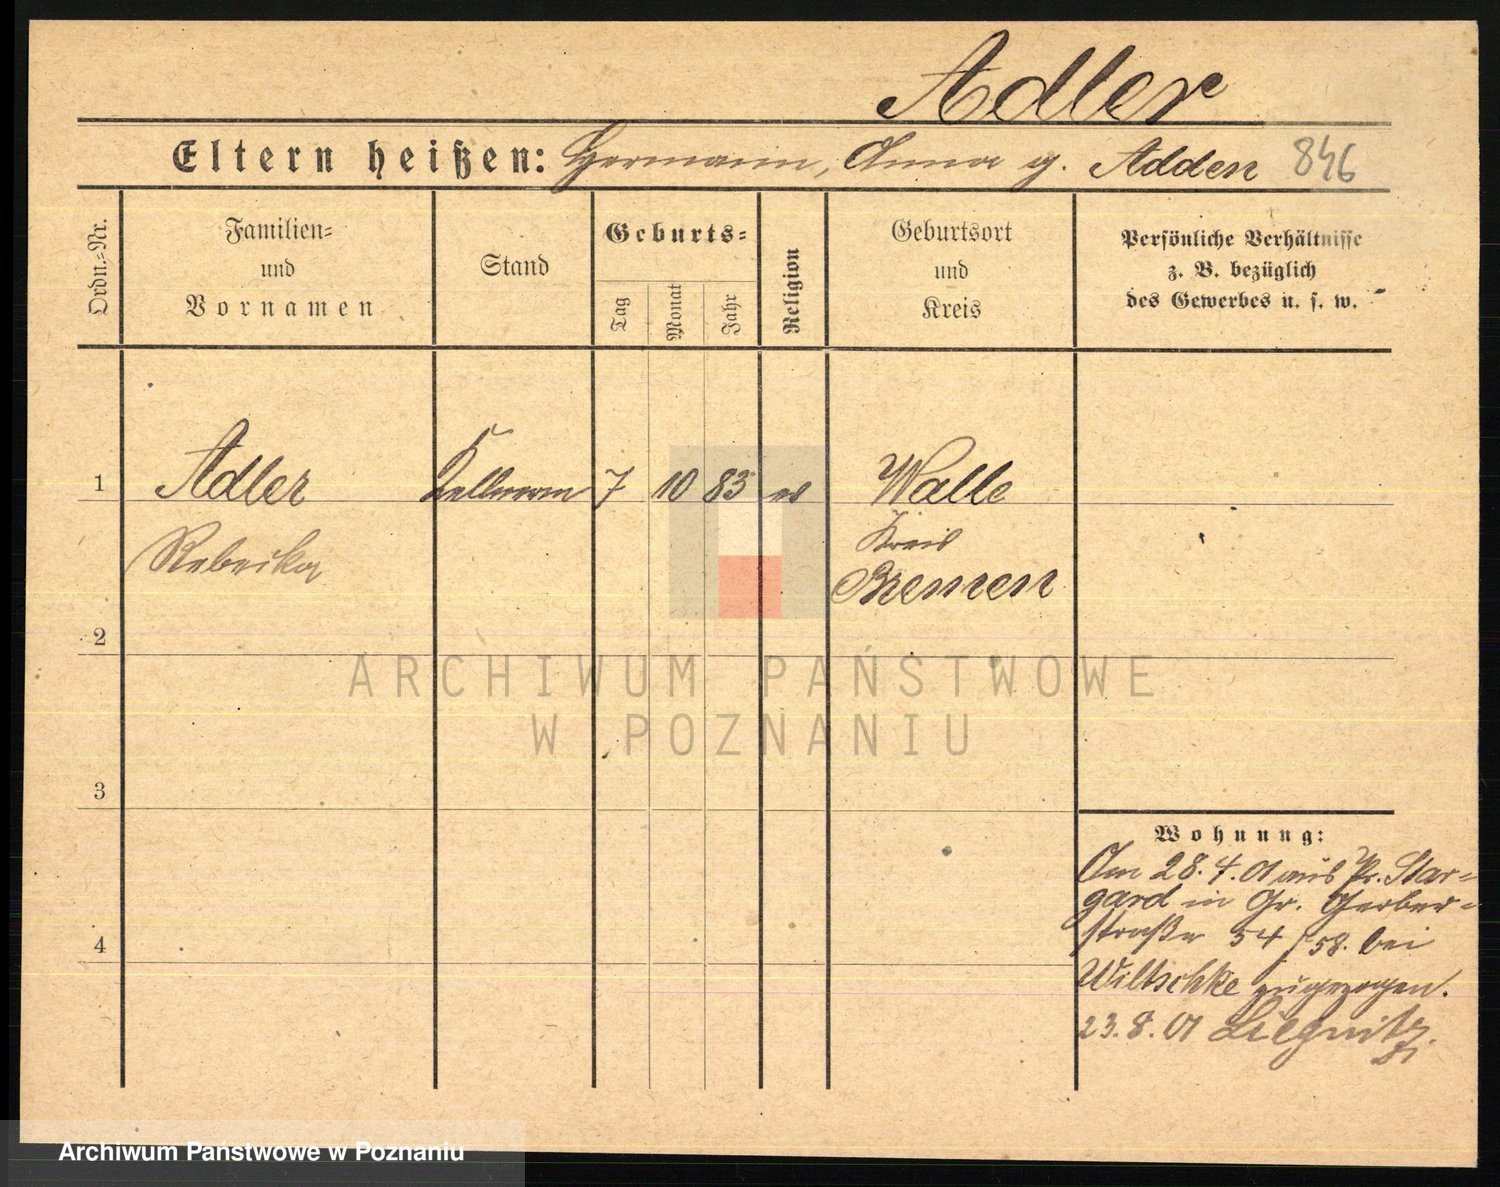 Adler
Eltern heißen: Hermann, Anna g. Adden 846
Ordn.-Nr.
Familien-
und
Vornamen
Stand
Geburts-
Tag
Monat
Jahr
Religion
Geburtsort
und
Kreis
Persönliche Verhältnisse
z. B. bezüglich
des Gewerbes u. s. w.
1 Adler Kellnerin 7 10 83 ev Walle
Rebecka Kreis
Bremen
2
3
4
Wohnung:
Am 28.4.01 aus Pr. Star-
gard in Gr. Gerber-
straße 54/58. bei
Wiltschke zugezogen.
23.8.01 Liegnitz.
ARCHIWUM PAŃSTWOWE
W POZNANIU
Archiwum Państwowe w Poznaniu